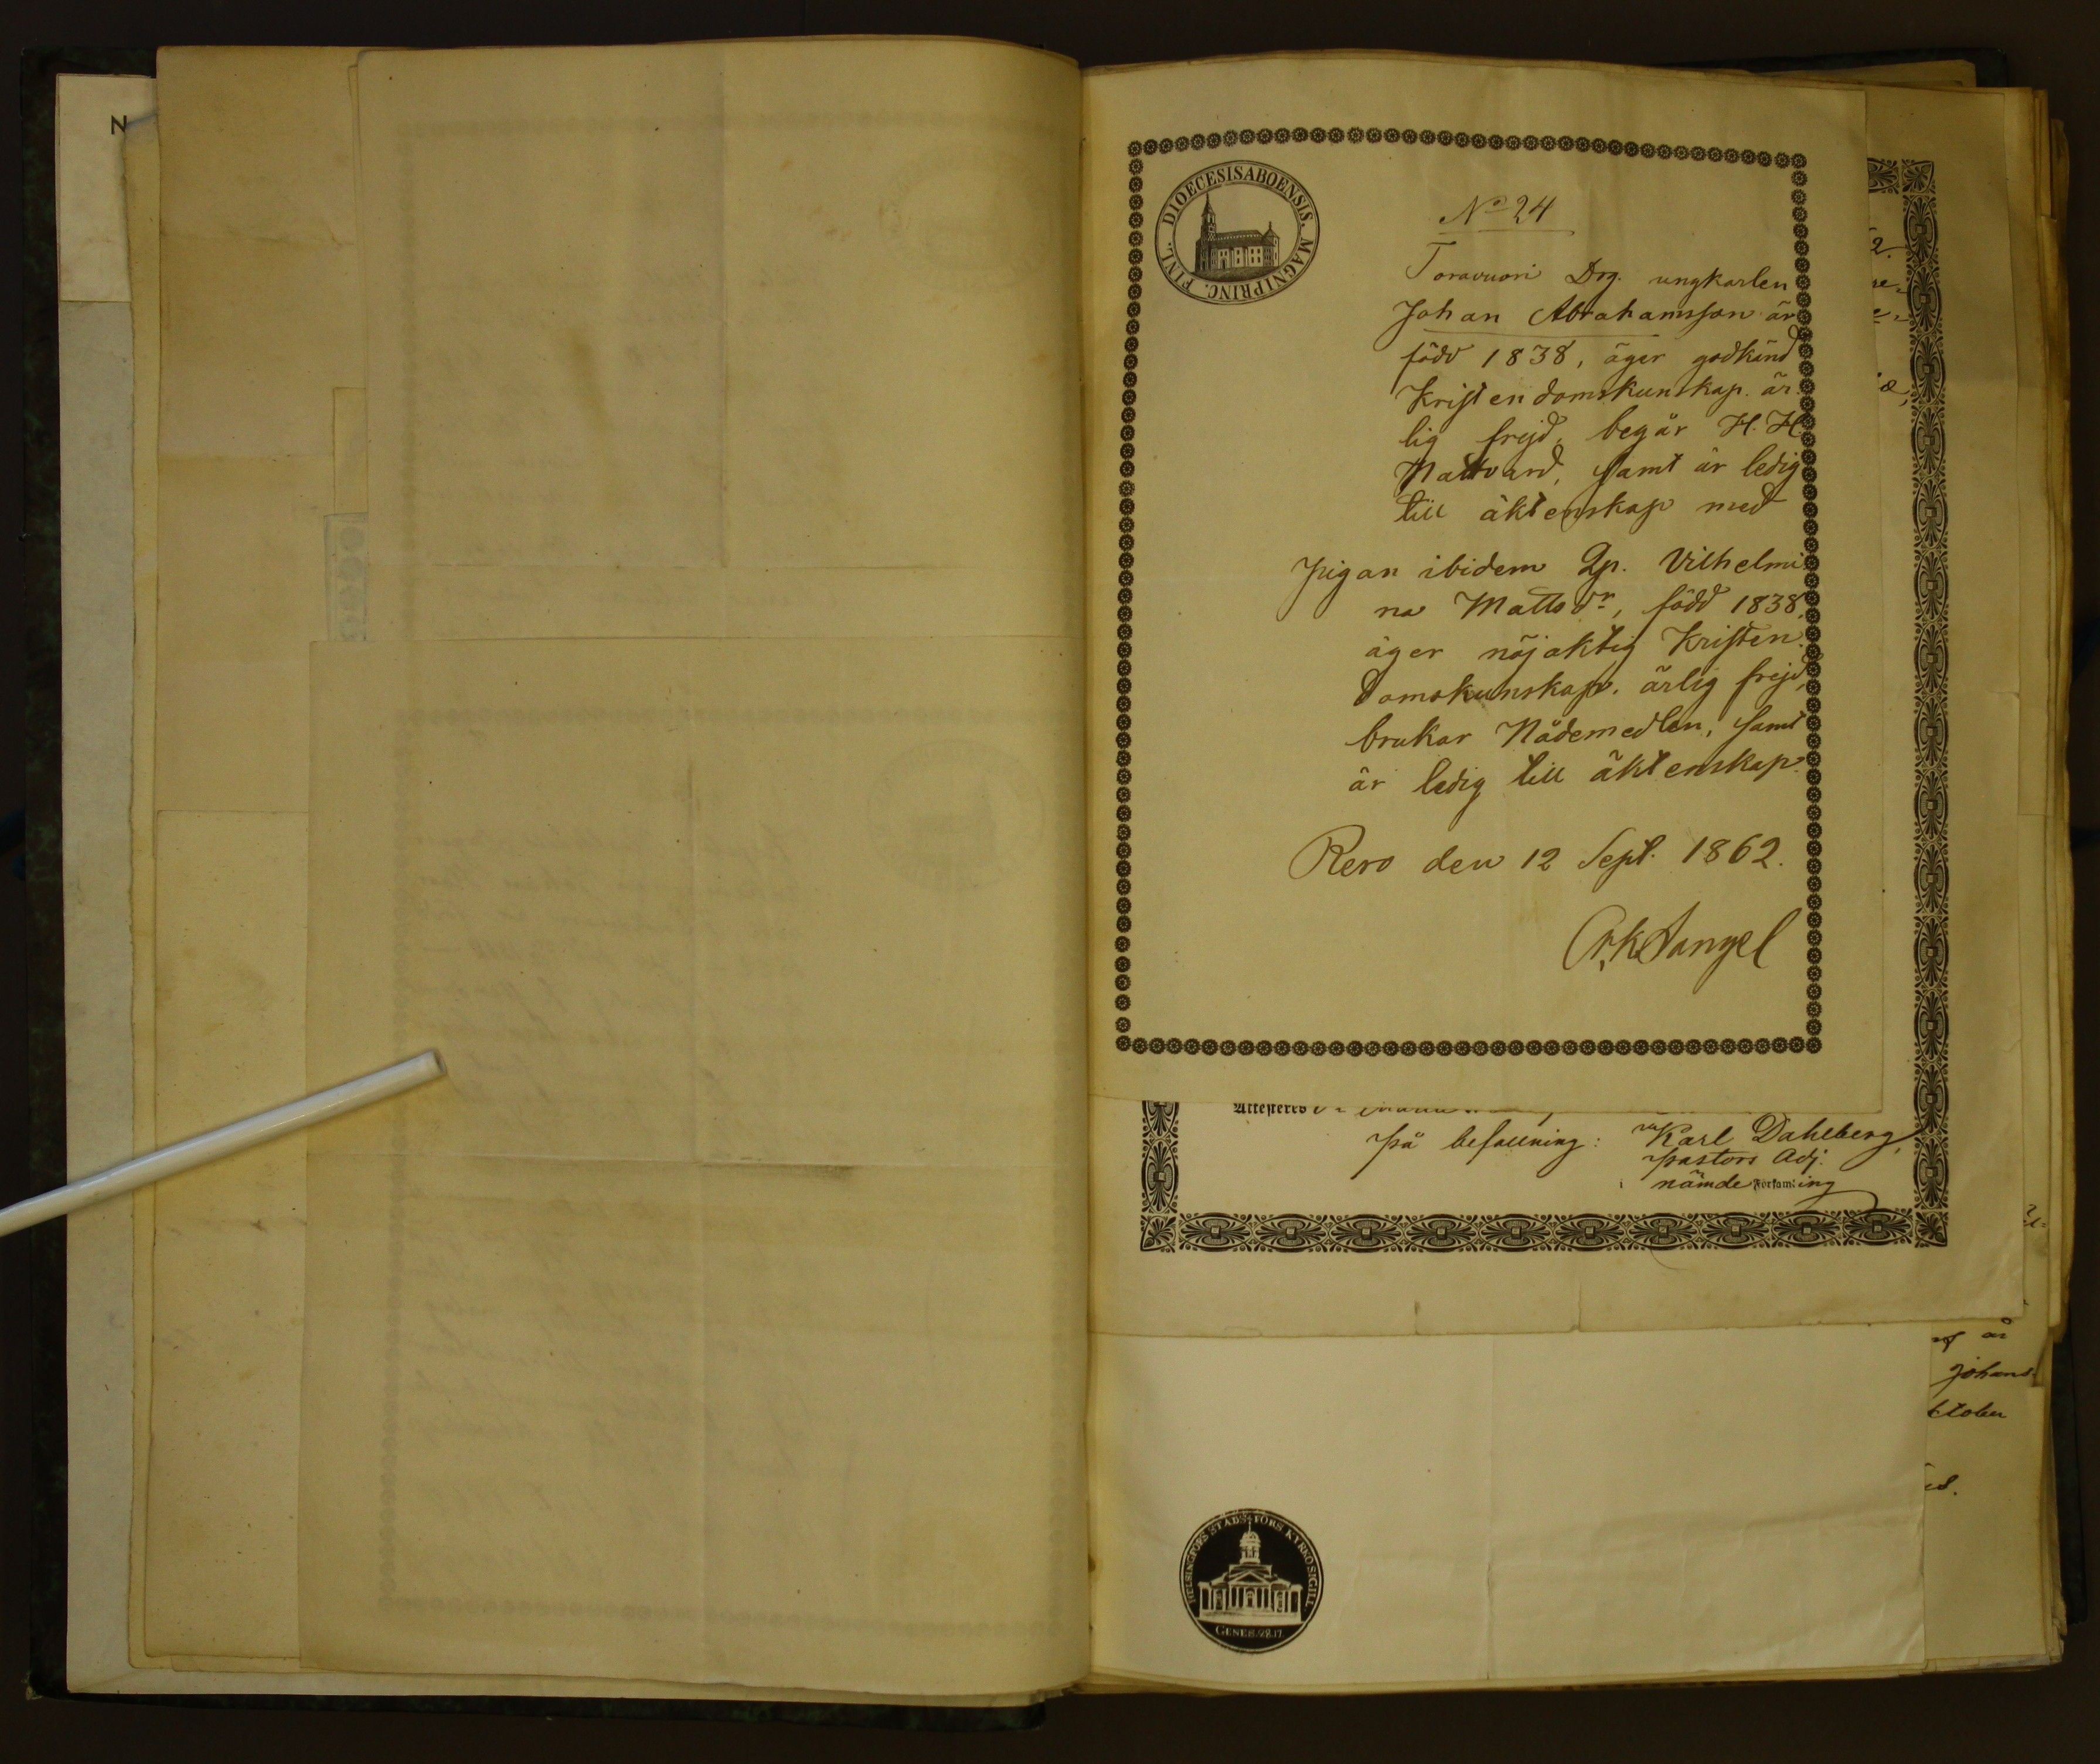 N
DIOECESISABOENSIS. MAGNIPRINC. FINL.
No 24
Toravuori Drg. ungkarlen
Johan Abrahamsson är
född 1838, äger godkänd
Kristendomskunskap. är
lig frejd, begår H. H.
Nattvard, samt är ledig
till äktenskap med
pigan ibidem Vilhelmi
na Mattsdr, född 1838,
äger nöjaktig Kristen.
domskunskap. ärlig frejd,
brukar Nådemedlen, samt
är ledig till äktenskap.
Rero den 12 Sept. 1862.
På befallning: Karl Dahlberg,
pastors Adj.
nämde Församl:ing
år
Johans
ktober
HELSINGFORS STADS FÖRS KYRKO SIGILL.
GENES. 28.17.